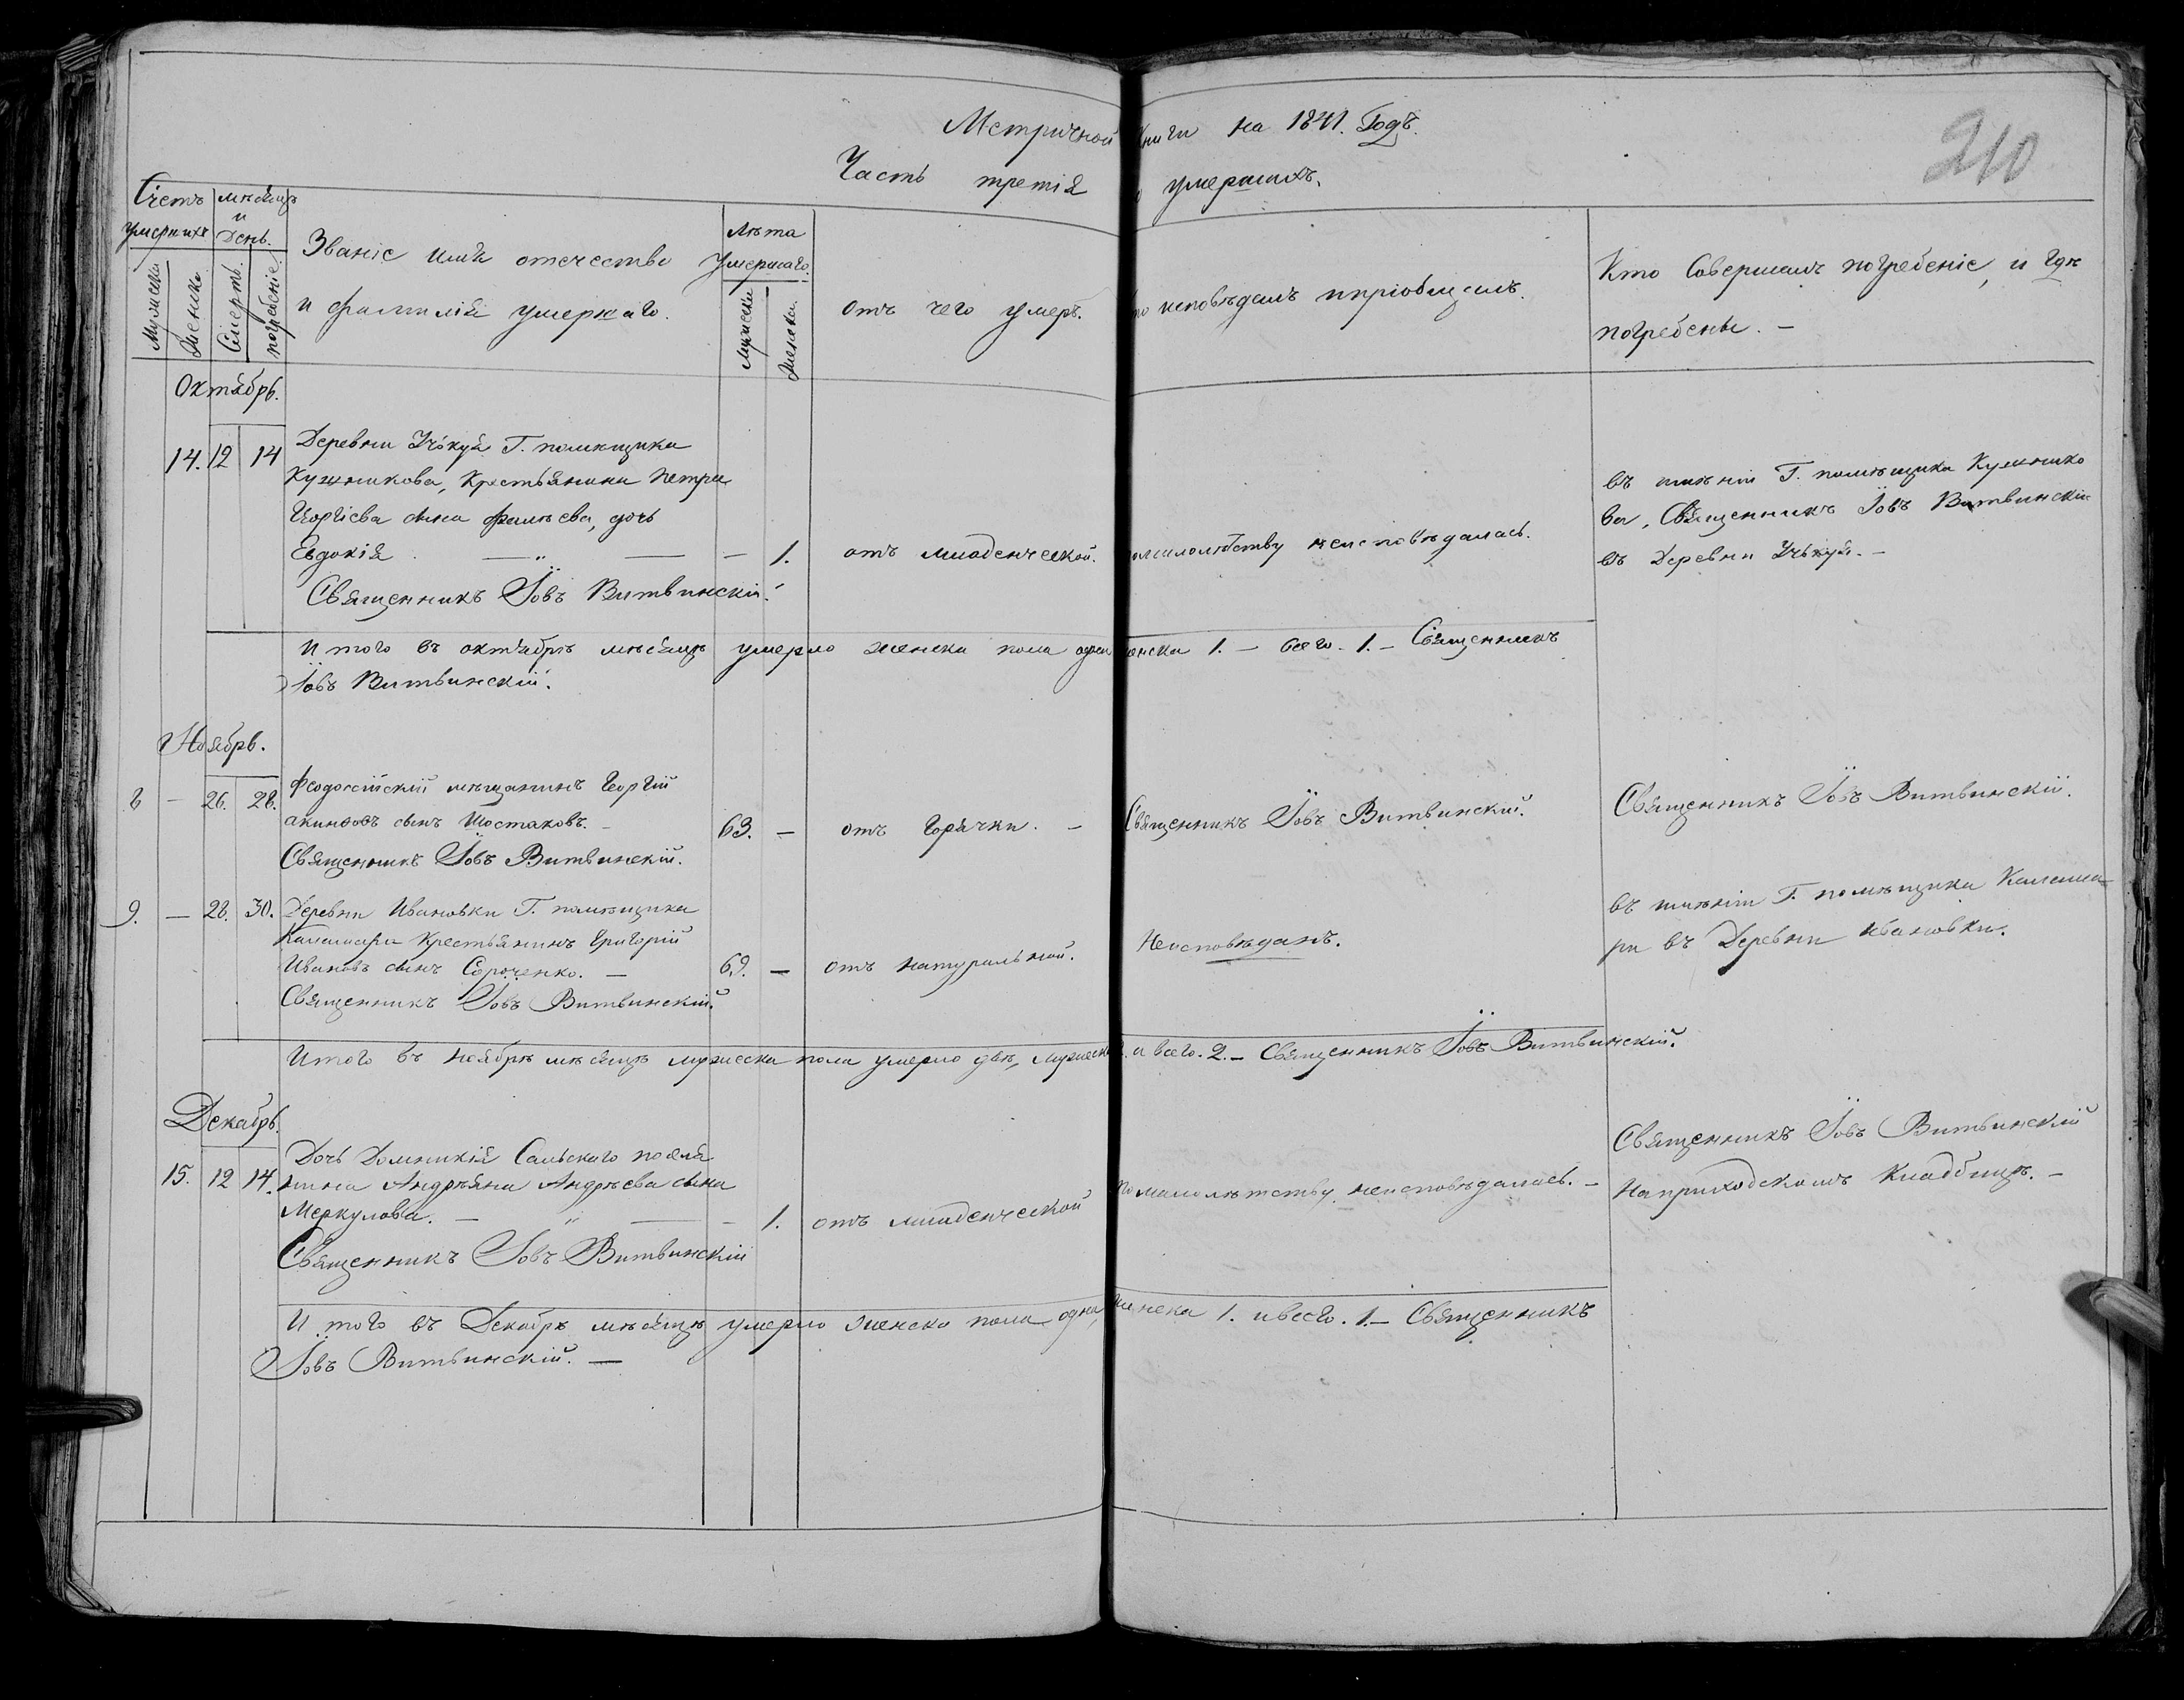 Метричной книги на 1841. Годъ.
210
Часть третія о умершихъ.
Счетъ умершихъ
мѣсяцъ и День.
Званіе имя отечество
и фамилія умершаго.
Лѣта Умершаго.
отъ чего умеръ.
кто исповѣдалъ ипріобщалъ.
Кто Совершалъ погребеніе, и гдѣ
погребены. —
Мужеска
Женска
Смерть.
погребеніе.
мужеска
женска.
Октябрь.
14. 12 14
Деревни Учькуя Г. помещика
Кушникова, Крестьянина Петра
Георгіева сына Фалѣева, дочь
Евдокія. — „ — — 1. отъ младенческой. помалолѣтству неисповѣдалась.
Священникъ Іовъ Витвинскій.
въ имѣніи Г. помѣщика Кушнико
ва, Священникъ Іовъ Витвинскій
въ Деревни Учькуя. —
Итого въ октябрѣ мѣсяцѣ умерло женска пола одна женска 1. — всего. 1. — Священникъ
Іовъ Витвинскій.
Ноябрь.
8 — 26. 28.
Феодосійскій мѣщанинъ Георгій
акинфовъ сынъ Шостаковъ. — 63. — отъ Горячки. — Священникъ Іовъ Витвинскій. Священникъ Іовъ Витвинскій.
Священникъ Іовъ Витвинскій.
9. — 28. 30.
Деревни Ивановки Г. помѣщика
Каламары Крестьянинъ Григорій
Ивановъ сынъ Сороченко. — 69. — отъ натуральной. Неисповѣданъ.
Священникъ Іовъ Витвинскій.
въ имѣніи Г. помѣщика Калама
ры въ Деревни Ивановки.
Итого въ ноябрѣ мѣсяцѣ мужеска пола умерло двѣ, мужеска. и всего. 2. — Священникъ Іовъ Витвинскій.
Декабрь.
15. 12 14.
Дочь Домникія Сальскаго поселя
нина Андреяна Андрѣева сына
Меркулова. — „ — — 1. отъ младенческой помалолѣтству неисповѣдалась. —
Священникъ Іовъ Витвинскій
Священникъ Іовъ Витвинскій
Наприходскомъ Кладбищѣ. —
Итого въ Декабрѣ мѣсяцѣ умерло женска пола одна, женска 1. ивсего. 1. — Священникъ
Іовъ Витвинскій. —